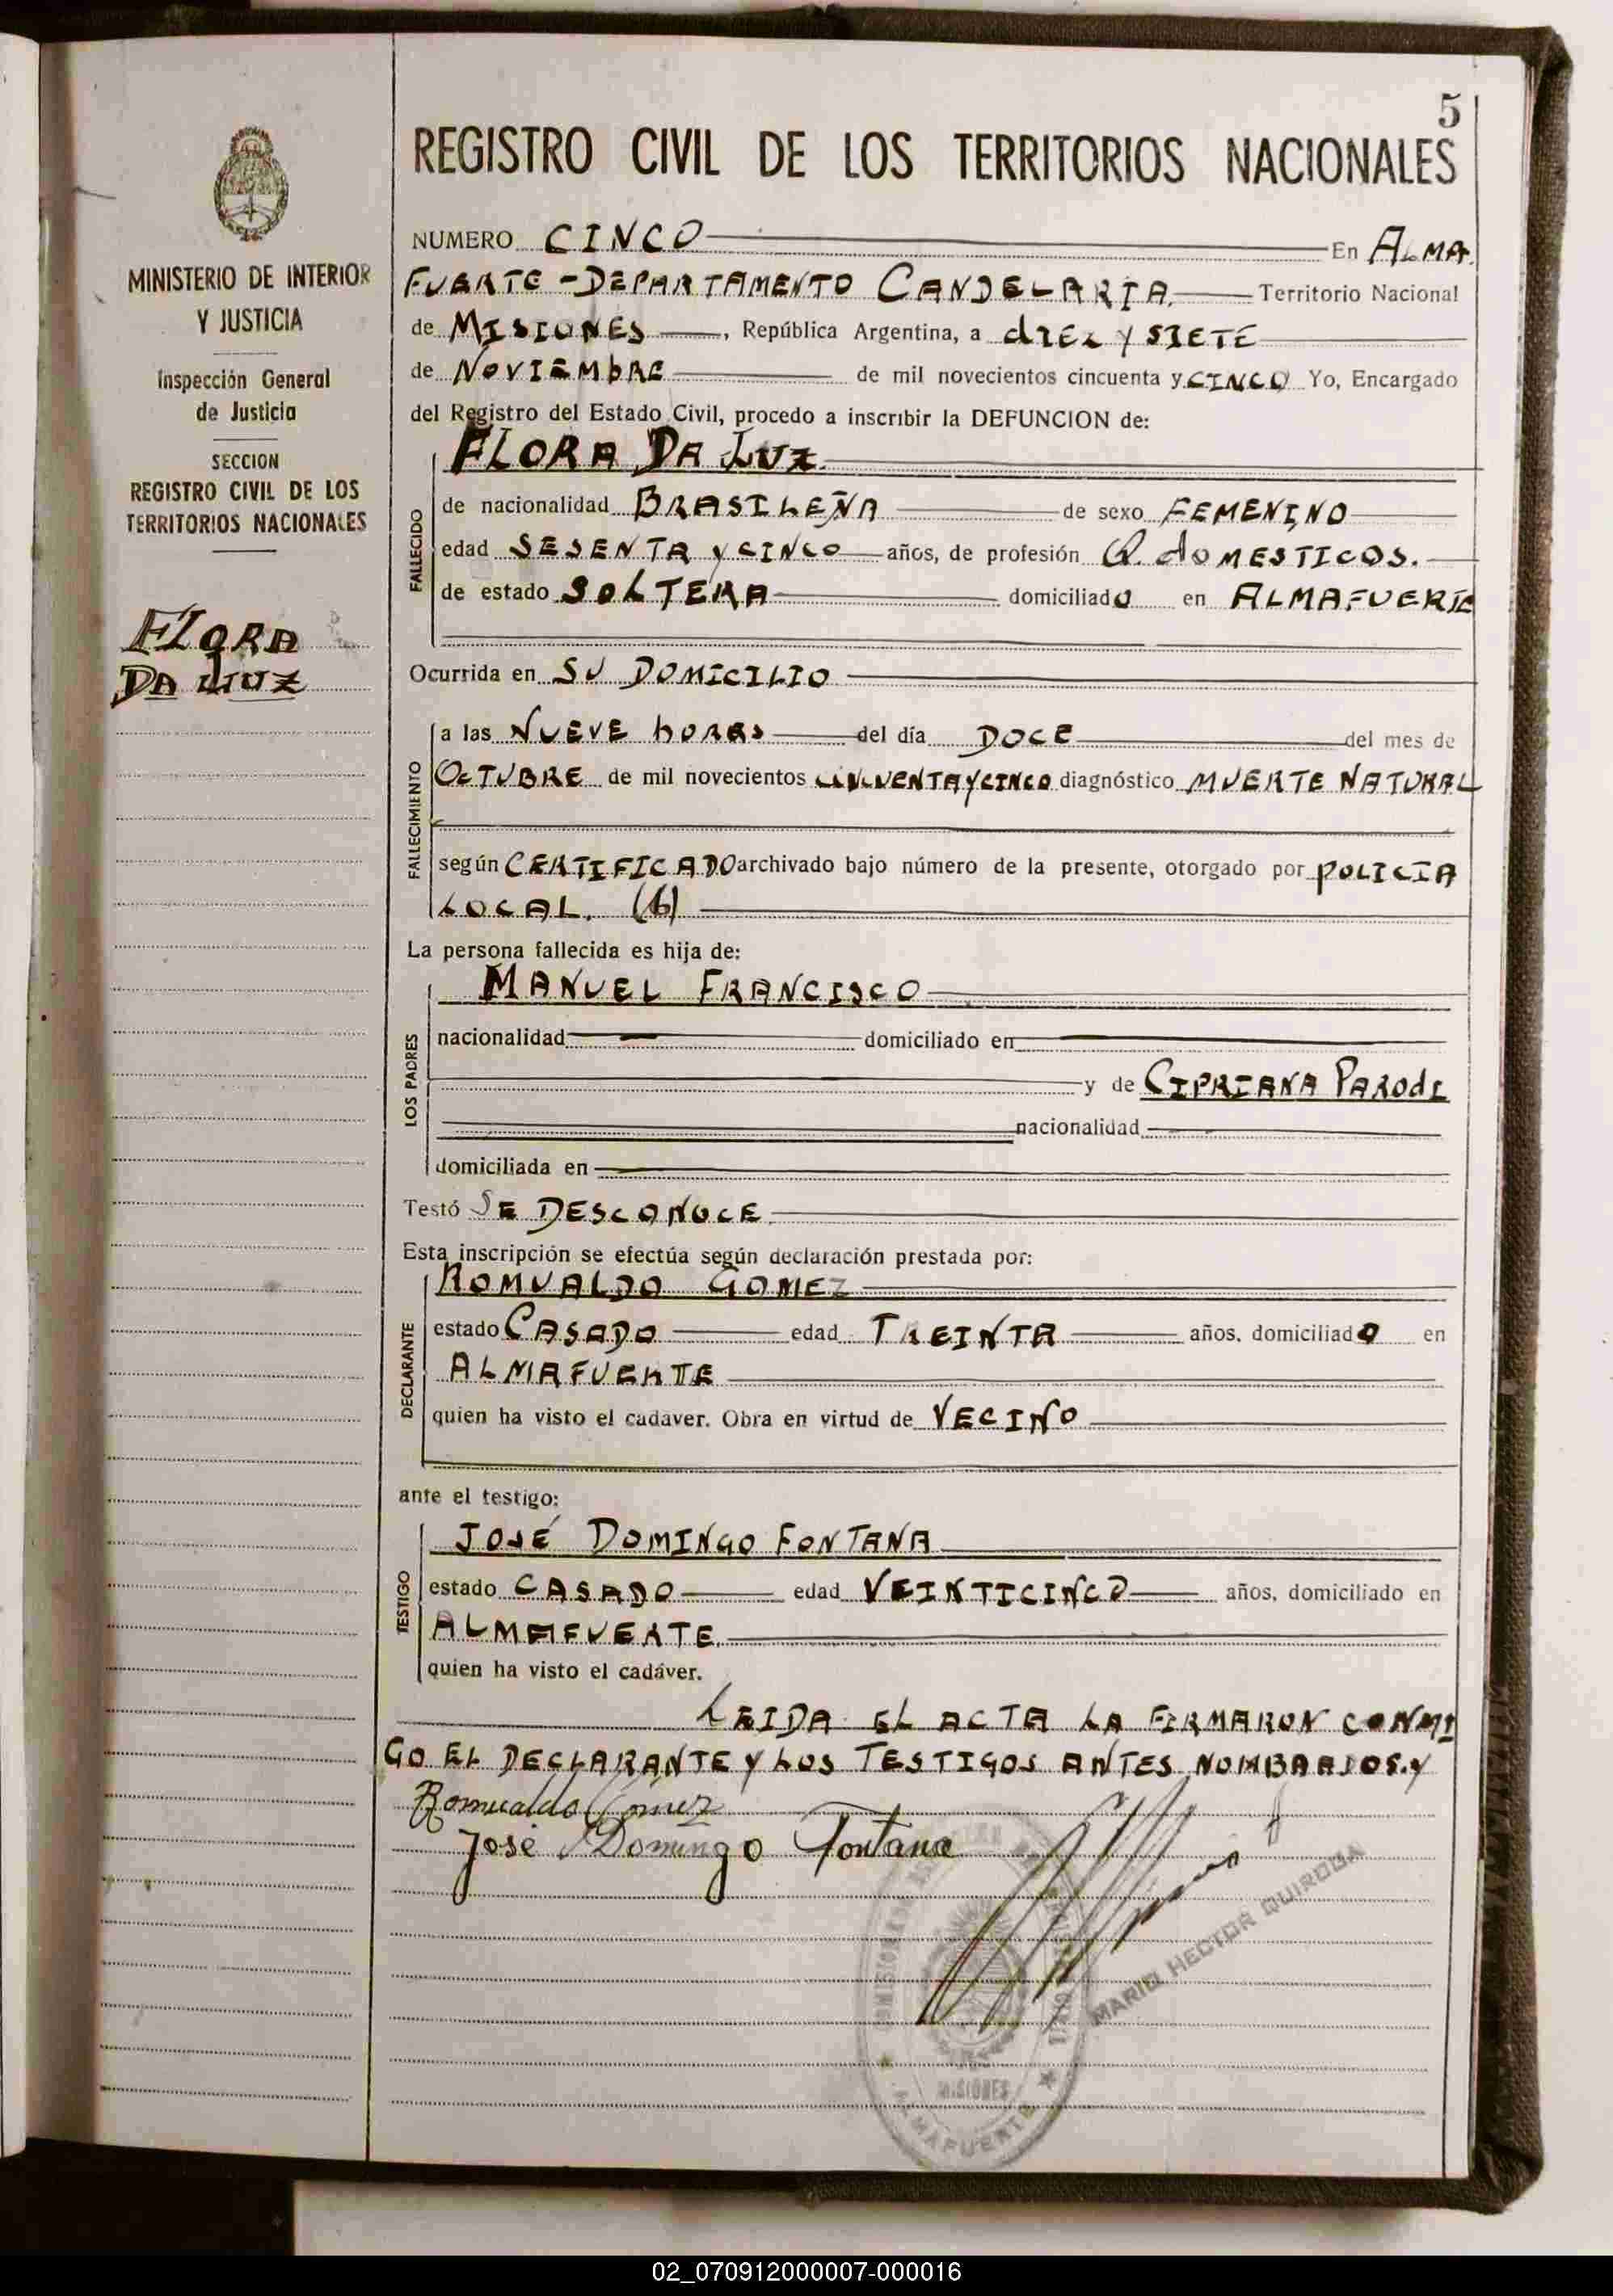 5
REGISTRO CIVIL DE LOS TERRITORIOS NACIONALES
MINISTERIO DE INTERIOR
Y JUSTICIA
Inspección General
de Justicia
SECCION
REGISTRO CIVIL DE LOS
TERRITORIOS NACIONALES
FLORA
DA LUZ
NUMERO CINCO En ALMA
FUERTE - DEPARTAMENTO CANDELARIA. Territorio Nacional
de MISIONES, República Argentina, a diEZ y SIETE
de NOVIEMbRE de mil novecientos cincuenta y CINCO Yo, Encargado
del Registro del Estado Civil, procedo a inscribir la DEFUNCION de:
FLORA DA LUZ
FALLECIDO
de nacionalidad BRASILEÑA de sexo FEMENINO
edad SESENTA y CINCO años, de profesión Q. dOMESTICOS.
de estado SOLTERA domiciliado en ALMAFUERTE
Ocurrida en SU DOMICILIO
FALLECIMIENTO
a las NUEVE hORAS del día DOCE del mes de
OCTUBRE de mil novecientos CINCUENTA Y CINCO diagnóstico MUERTE NATURAL
según CERTIFICADO archivado bajo número de la presente, otorgado por POLICIA
LOCAL. (6)
La persona fallecida es hija de:
LOS PADRES
MANUEL FRANCISCO
nacionalidad domiciliado en
y de CIPRIANA PARODI
nacionalidad
domiciliada en
Testó SE DESCONOCE
Esta inscripción se efectúa según declaración prestada por:
DECLARANTE
ROMUALDO GOMEZ
estado CASADO edad TREINTA años, domiciliado en
ALMAFUERTE
quien ha visto el cadaver. Obra en virtud de VECINO
ante el testigo:
TESTIGO
JOSÉ DOMINGO FONTANA
estado CASADO edad VEINTICINCO años, domiciliado en
ALMAFUERTE
quien ha visto el cadáver.
LEIDA EL ACTA LA FIRMARON CONMI
GO EL DECLARANTE Y LOS TESTIGOS ANTES NOMBRADOS. Y
Romualdo Gomez
José Domingo Fontana
MARIO HECTOR QUIROGA
MISIONES
ALMAFUERTE
02_070912000007-000016